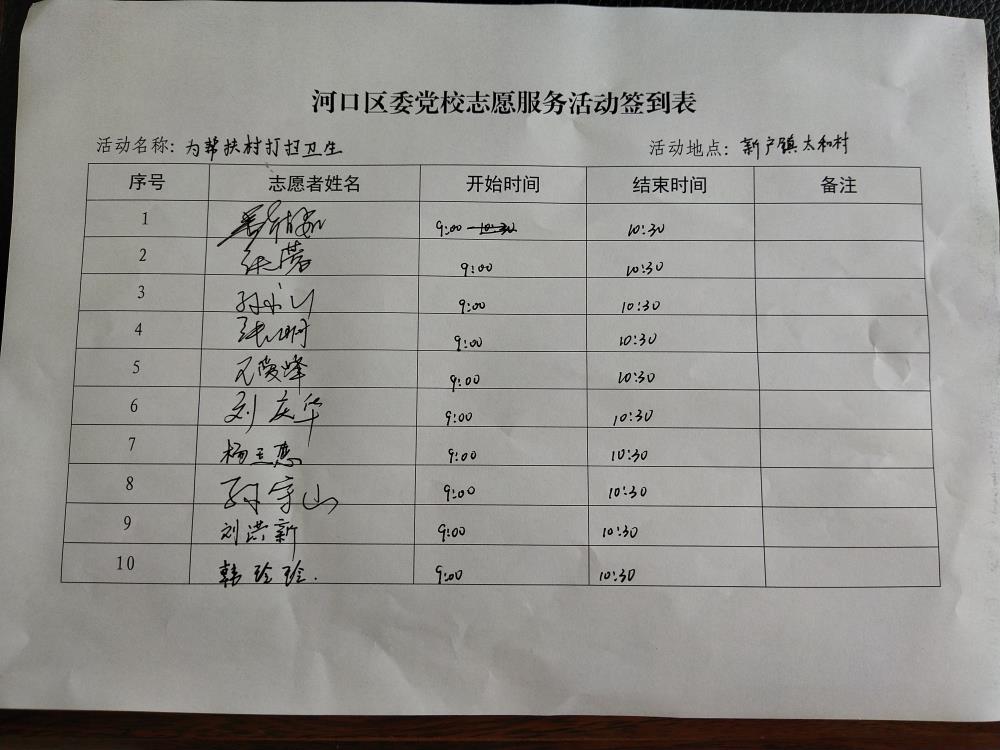 河口区委党校志愿服务活动签到表
活动名称：为帮扶村打扫卫生 活动地点：新户镇太和村
序号 志愿者姓名 开始时间 结束时间 备注
1 9:00 10:30
2 张蕾 9:00 10:30
3 9:00 10:30
4 张明 9:00 10:30
5 9:00 10:30
6 刘庆华 9:00 10:30
7 杨玉惠 9:00 10:30
8 孙守山 9:00 10:30
9 刘洪新 9:00 10:30
10 韩玲玲. 9:00 10:30